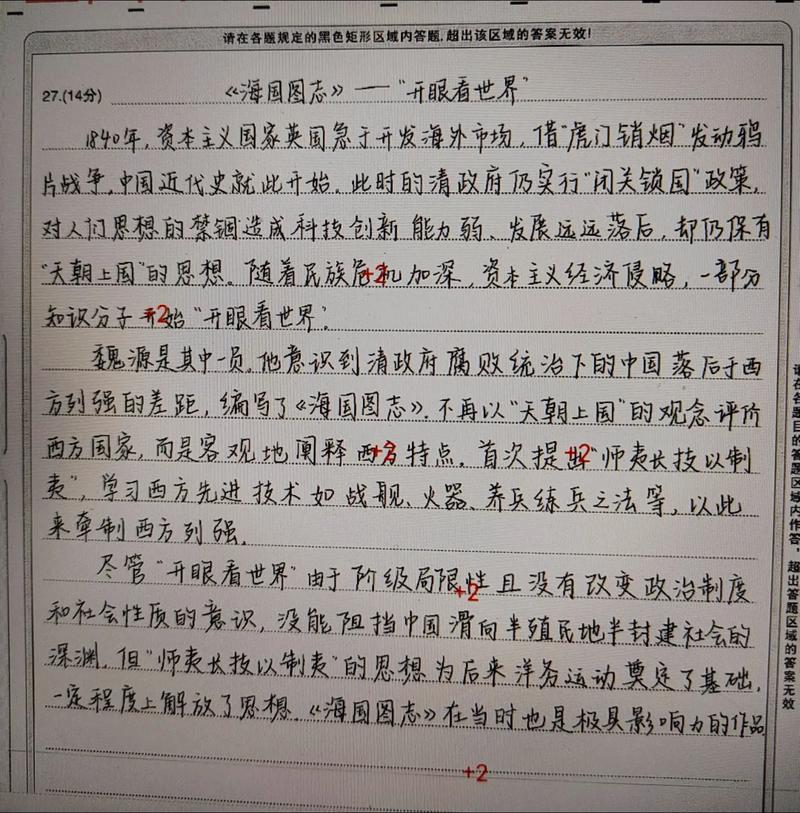 请在各题规定的黑色矩形区域内答题,超出该区域的答案无效!
27.(14分) 《海国图志》——“开眼看世界”
1840年,资本主义国家英国急于开发海外市场,借“虎门销烟”发动鸦
片战争,中国近代史就此开始。此时的清政府仍实行“闭关锁国”政策,
对人们思想的禁锢造成科技创新能力弱、发展远远落后,却仍保有
“天朝上国”的思想。随着民族危机加深,资本主义经济侵略,一部分
+2
知识分子开始“开眼看世界”。
+2
魏源是其中一员。他意识到清政府腐败统治下的中国落后于西
方列强的差距,编写了《海国图志》。不再以“天朝上国”的观念评价
西方国家,而是客观地阐释西方特点。首次提出“师夷长技以制
+2 +2
夷”,学习西方先进技术如战舰、火器、养兵练兵之法等,以此
来牵制西方列强。
尽管“开眼看世界”由于阶级局限性且没有改变政治制度
+2
和社会性质的意识,没能阻挡中国滑向半殖民地半封建社会的
深渊。但“师夷长技以制夷”的思想为后来洋务运动奠定了基础,
一定程度上解放了思想。《海国图志》在当时也是极具影响力的作品
+2
请在各题目的答题区域内作答,超出答题区域的答案无效